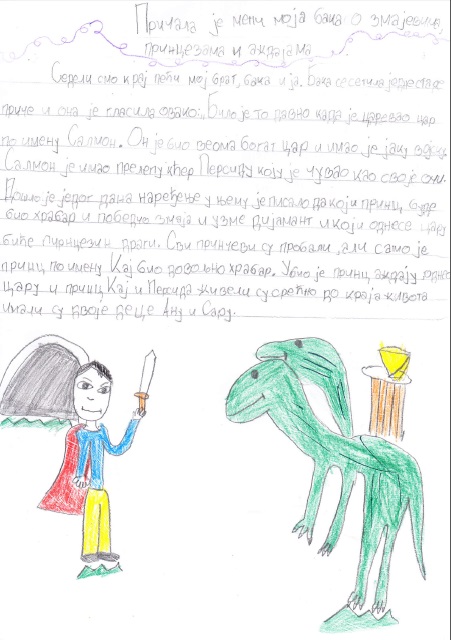 Причала је мени моја бака о змајевима,
принцезама и аждајама
Седели смо крај пећи мој брат, бака и ја. Бака се сетила једне старе
приче и она је гласила овако: „Било је то давно када је царевао цар
по имену Салмон. Он је био веома богат цар и имао је јаку војску.
Салмон је имао прелепу кћер Персиду коју је чувао као своје очи.
Дошло је једог дана наређење у њему је писало да који принц буде
био храбар и победио змаја и узме дијамант и који однесе цару
биће принцезин драги. Сви принчеви су пробали, али само је
принц по имену Кај био довољно храбар. Убио је принц аждају однео
цару и принц Кај и Персида живели су срећно до краја живота
имали су двоје деце Ану и Сару.